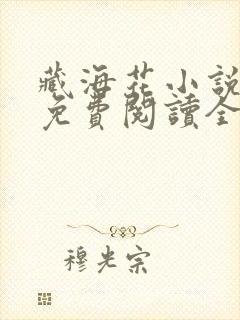 藏海花小説
免費閱讀全
穆光宗